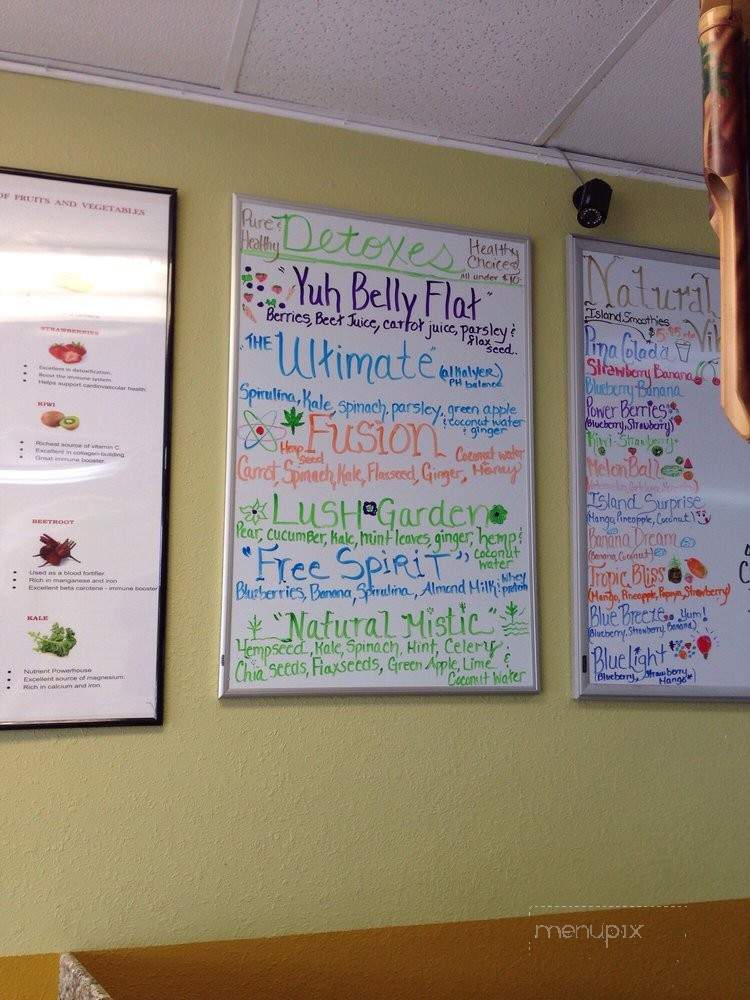 OF FRUITS AND VEGETABLES
STRAWBERRIES
Excellent in detoxification.
Boost the immune system.
Helps support cardiovascular health.
KIWI
Richest source of vitamin C.
Excellent in collagen-building.
Great immune booster.
BEETROOT
Used as a blood fortifier
Rich in manganese and iron
Excellent beta carotene - immune booster
KALE
Nutrient Powerhouse
Excellent source of magnesium.
Rich in calcium and iron.
Pure & Healthy
Detoxes
Healthy Choices
All under $10
"Yuh Belly Flat"
Berries, Beet Juice, carrot juice, parsley & flax seed..
"THE Ultimate" (alkalyzer) PH balance
Spirulina, Kale, spinach, parsley, green apple & coconut water & ginger
Fusion
Hemp seed
Coconut water
Carrot, Spinach, Kale, Flaxseed, Ginger, Honey
LUSH Garden
Pear, cucumber, kale, mint leaves, ginger, hemp & coconut water
"Free Spirit"
Blueberries, Banana, Spirulina, Almond Milk & whey protein
"Natural Mistic"
Hempseed, Kale, Spinach, Mint, Celery,
Chia seeds, Flaxseeds, Green Apple, Lime &
Coconut Water
Natural
Island Smoothies
Pina Colada
Strawberry Banana
Blueberry-Banana
Power Berries
(Blueberry, Strawberry)
Kiwi-Strawberry
Melon Ball
Island Surprise
(Mango, Pineapple, Coconut)
Banana Dream
(Banana, Coconut)
Tropic Bliss
(Mango, Pineapple, Papaya, Strawberry)
Blue Breeze Yum!
(Blueberry, Strawberry, Banana)
Blue Light
(Blueberry, Strawberry, Mango)
menupix